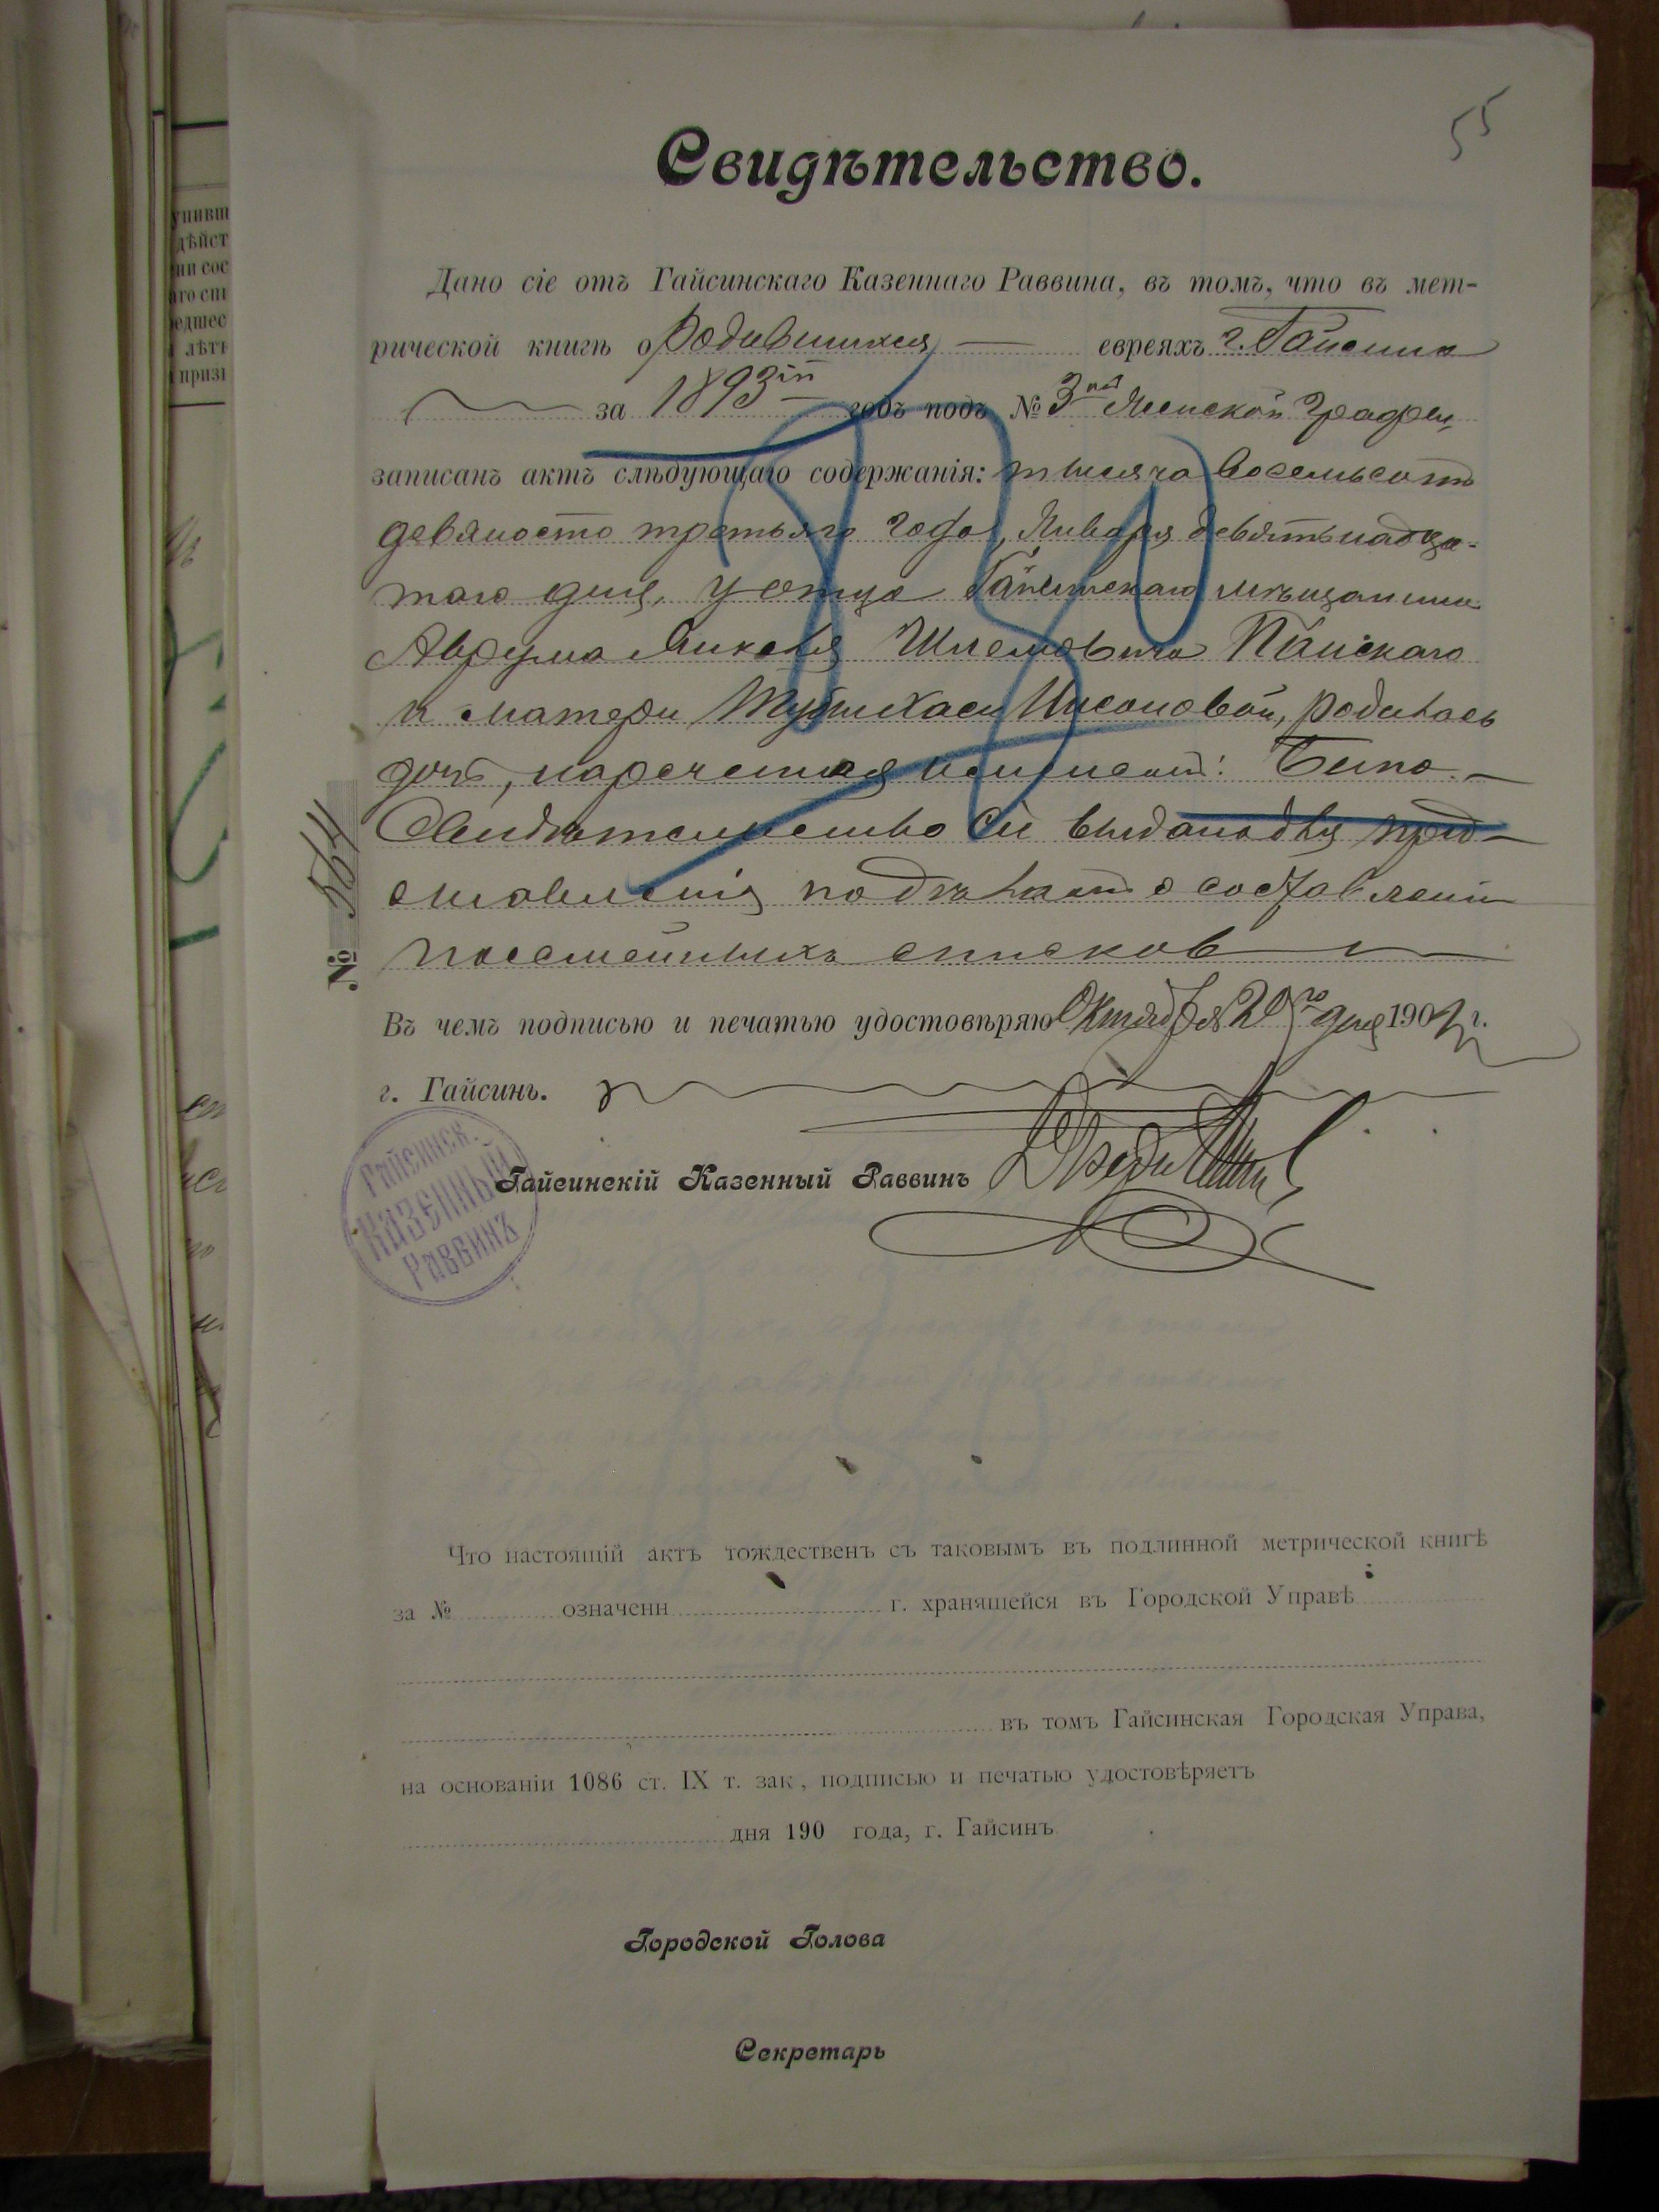 55
Свидѣтельство.
Дано сіе отъ Гайсинскаго Казеннаго Раввина, въ томъ, что въ мет-
рической книгѣ о родившихся евреяхъ г. Гайсина
за 1893й годъ подъ № 3 Женской графы
записанъ актъ слѣдующаго содержанія: тысяча восемьсотъ
девяносто третьяго года, Января девятнадца-
таго дня, у отца Гайсинскаго мѣщанина
Аврума Шлемовича Пайскаго
и матери родилась
дочь, нареченная именемъ:
Свидѣтельство сіе выдано для пред-
ставленія о составленіи
посемейныхъ списковъ
№ 564
Въ чемъ подписью и печатью удостовѣряю Октября дня 190 г.
г. Гайсинъ.
Гайсинскій Казенный Раввинъ
Гайсинск.
Казенный
Раввинъ
Что настоящій актъ тождественъ съ таковымъ въ подлинной метрической книгѣ
за № означенн г. хранящейся въ Городской Управѣ
въ томъ Гайсинская Городская Управа,
на основаніи 1086 ст. IX т. зак., подписью и печатью удостовѣряетъ
дня 190 года, г. Гайсинъ
Городской Голова
Секретарь